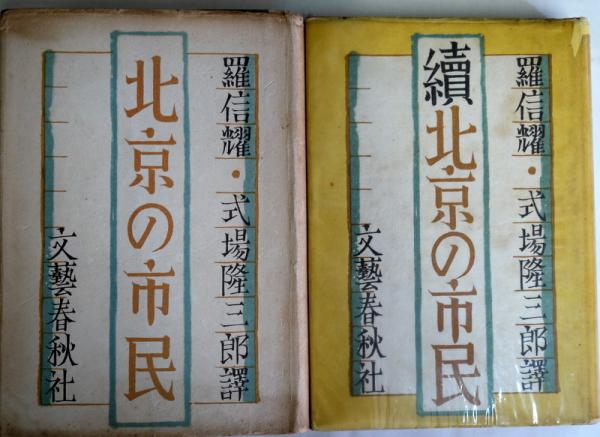 羅信耀・式場隆三郎譯
北京の市民
文藝春秋社
羅信耀・式場隆三郎譯
續北京の市民
文藝春秋社